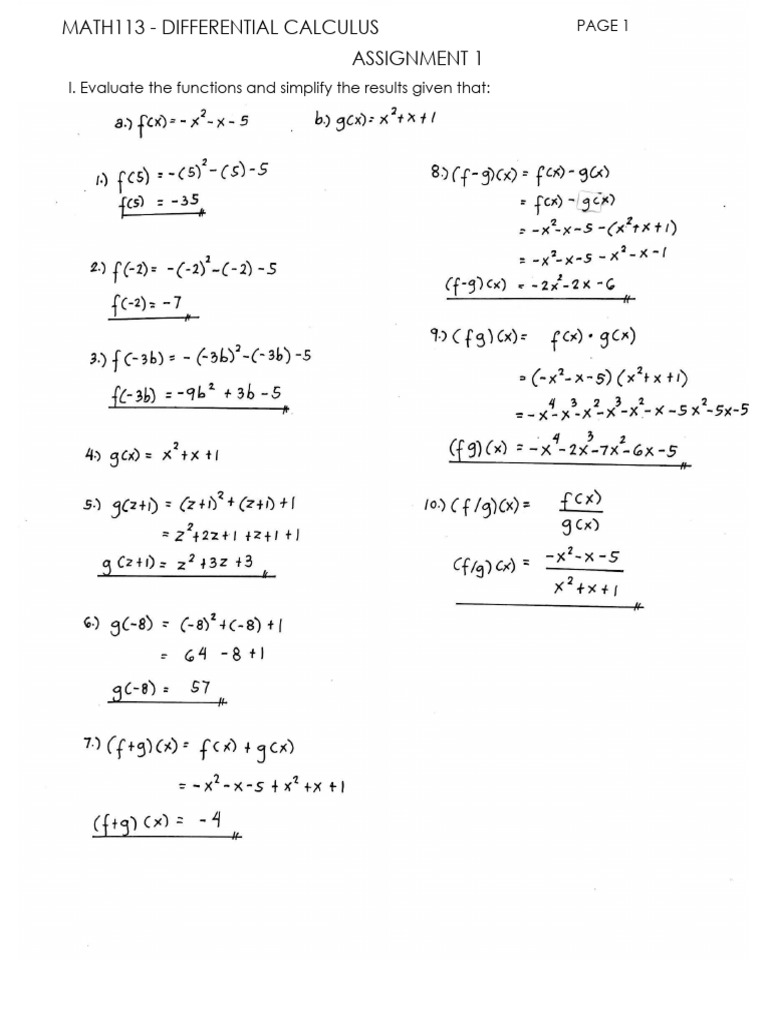 MATH113 - DIFFERENTIAL CALCULUS PAGE 1
ASSIGNMENT 1
I. Evaluate the functions and simplify the results given that:
a.) f(x) = -x² - x - 5 b.) g(x) = x² + x + 1
1.) f(5) = -(5)² - (5) - 5
f(5) = -35
2.) f(-2) = -(-2)² - (-2) - 5
f(-2) = -7
3.) f(-3b) = -(-3b)² - (-3b) - 5
f(-3b) = -9b² + 3b - 5
4.) g(x) = x² + x + 1
5.) g(z+1) = (z+1)² + (z+1) + 1
= z² + 2z + 1 + z + 1 + 1
g(z+1) = z² + 3z + 3
6.) g(-8) = (-8)² + (-8) + 1
= 64 - 8 + 1
g(-8) = 57
7.) (f+g)(x) = f(x) + g(x)
= -x² - x - 5 + x² + x + 1
(f+g)(x) = -4
8.) (f-g)(x) = f(x) - g(x)
= f(x) - g(x)
= -x² - x - 5 - (x² + x + 1)
= -x² - x - 5 - x² - x - 1
(f-g)(x) = -2x² - 2x - 6
9.) (fg)(x) = f(x) · g(x)
= (-x² - x - 5)(x² + x + 1)
= -x⁴ - x³ - x² - x³ - x² - x - 5x² - 5x - 5
(fg)(x) = -x⁴ - 2x³ - 7x² - 6x - 5
10.) (f/g)(x) = f(x)
g(x)
(f/g)(x) = -x² - x - 5
x² + x + 1